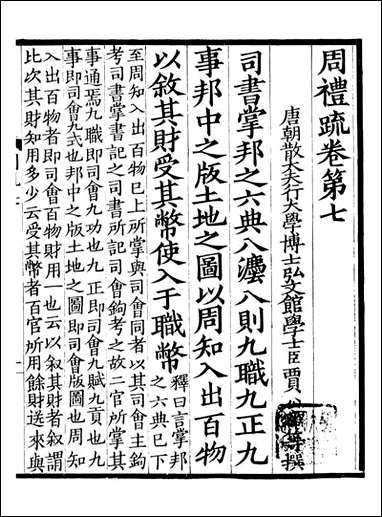 周禮疏卷第七
唐朝散大夫行大學博士弘文館學士臣賈公彥等撰
司書掌邦之六典八灋八則九職九正九
事邦中之版土地之圖以周知入出百物
以敘其財受其幣使入于職幣釋曰言掌邦
之六典已下
至周知入出百物已上所掌與司會同者以其司會主鉤
考司書掌書記之司書所記司會鉤考之故二官所掌其
事通焉九職即司會九功也九正即司會九賦九貢也九
事即司會九式也邦中之版土地之圖即司會版圖也周知
入出百物者即司會百物財用一也云以敘其財者敘謂
比次其財知用多少云受其幣者百官所用餘財送來與